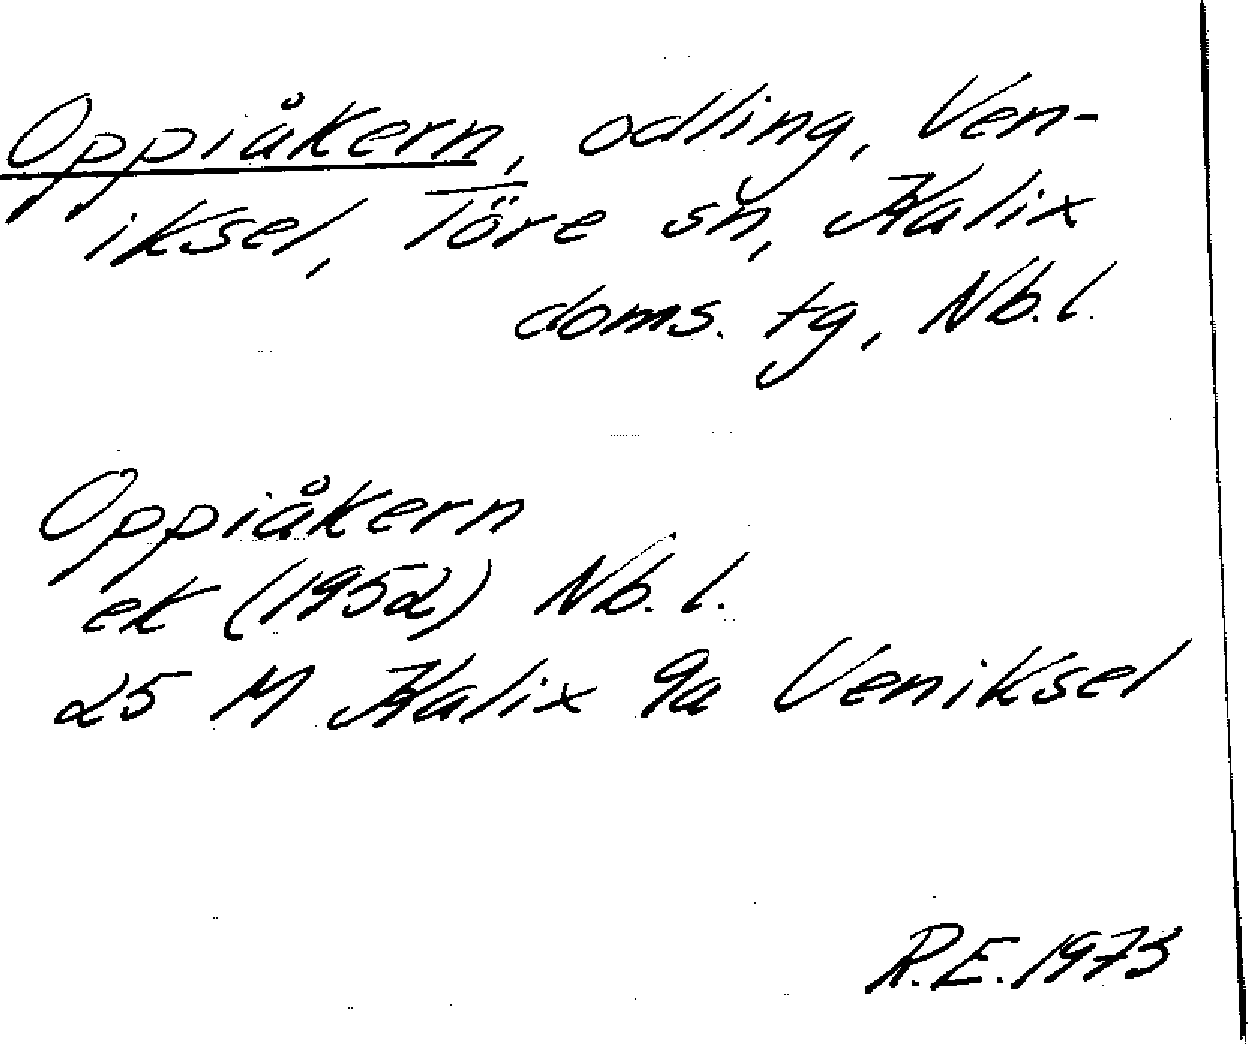 Oppiåkern, odling, Ven-
iksel, Töre sn, Kalix
doms. tg, Nb. l.
Oppiåkern
ek (1952) Nb. l.
25 M Kalix 9a Veniksel
R.E. 1975